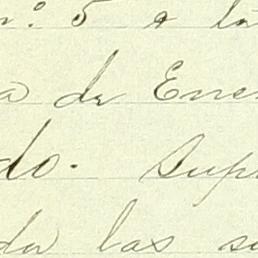 n.º 5 a la
a de Ene
do. Sup
da las su